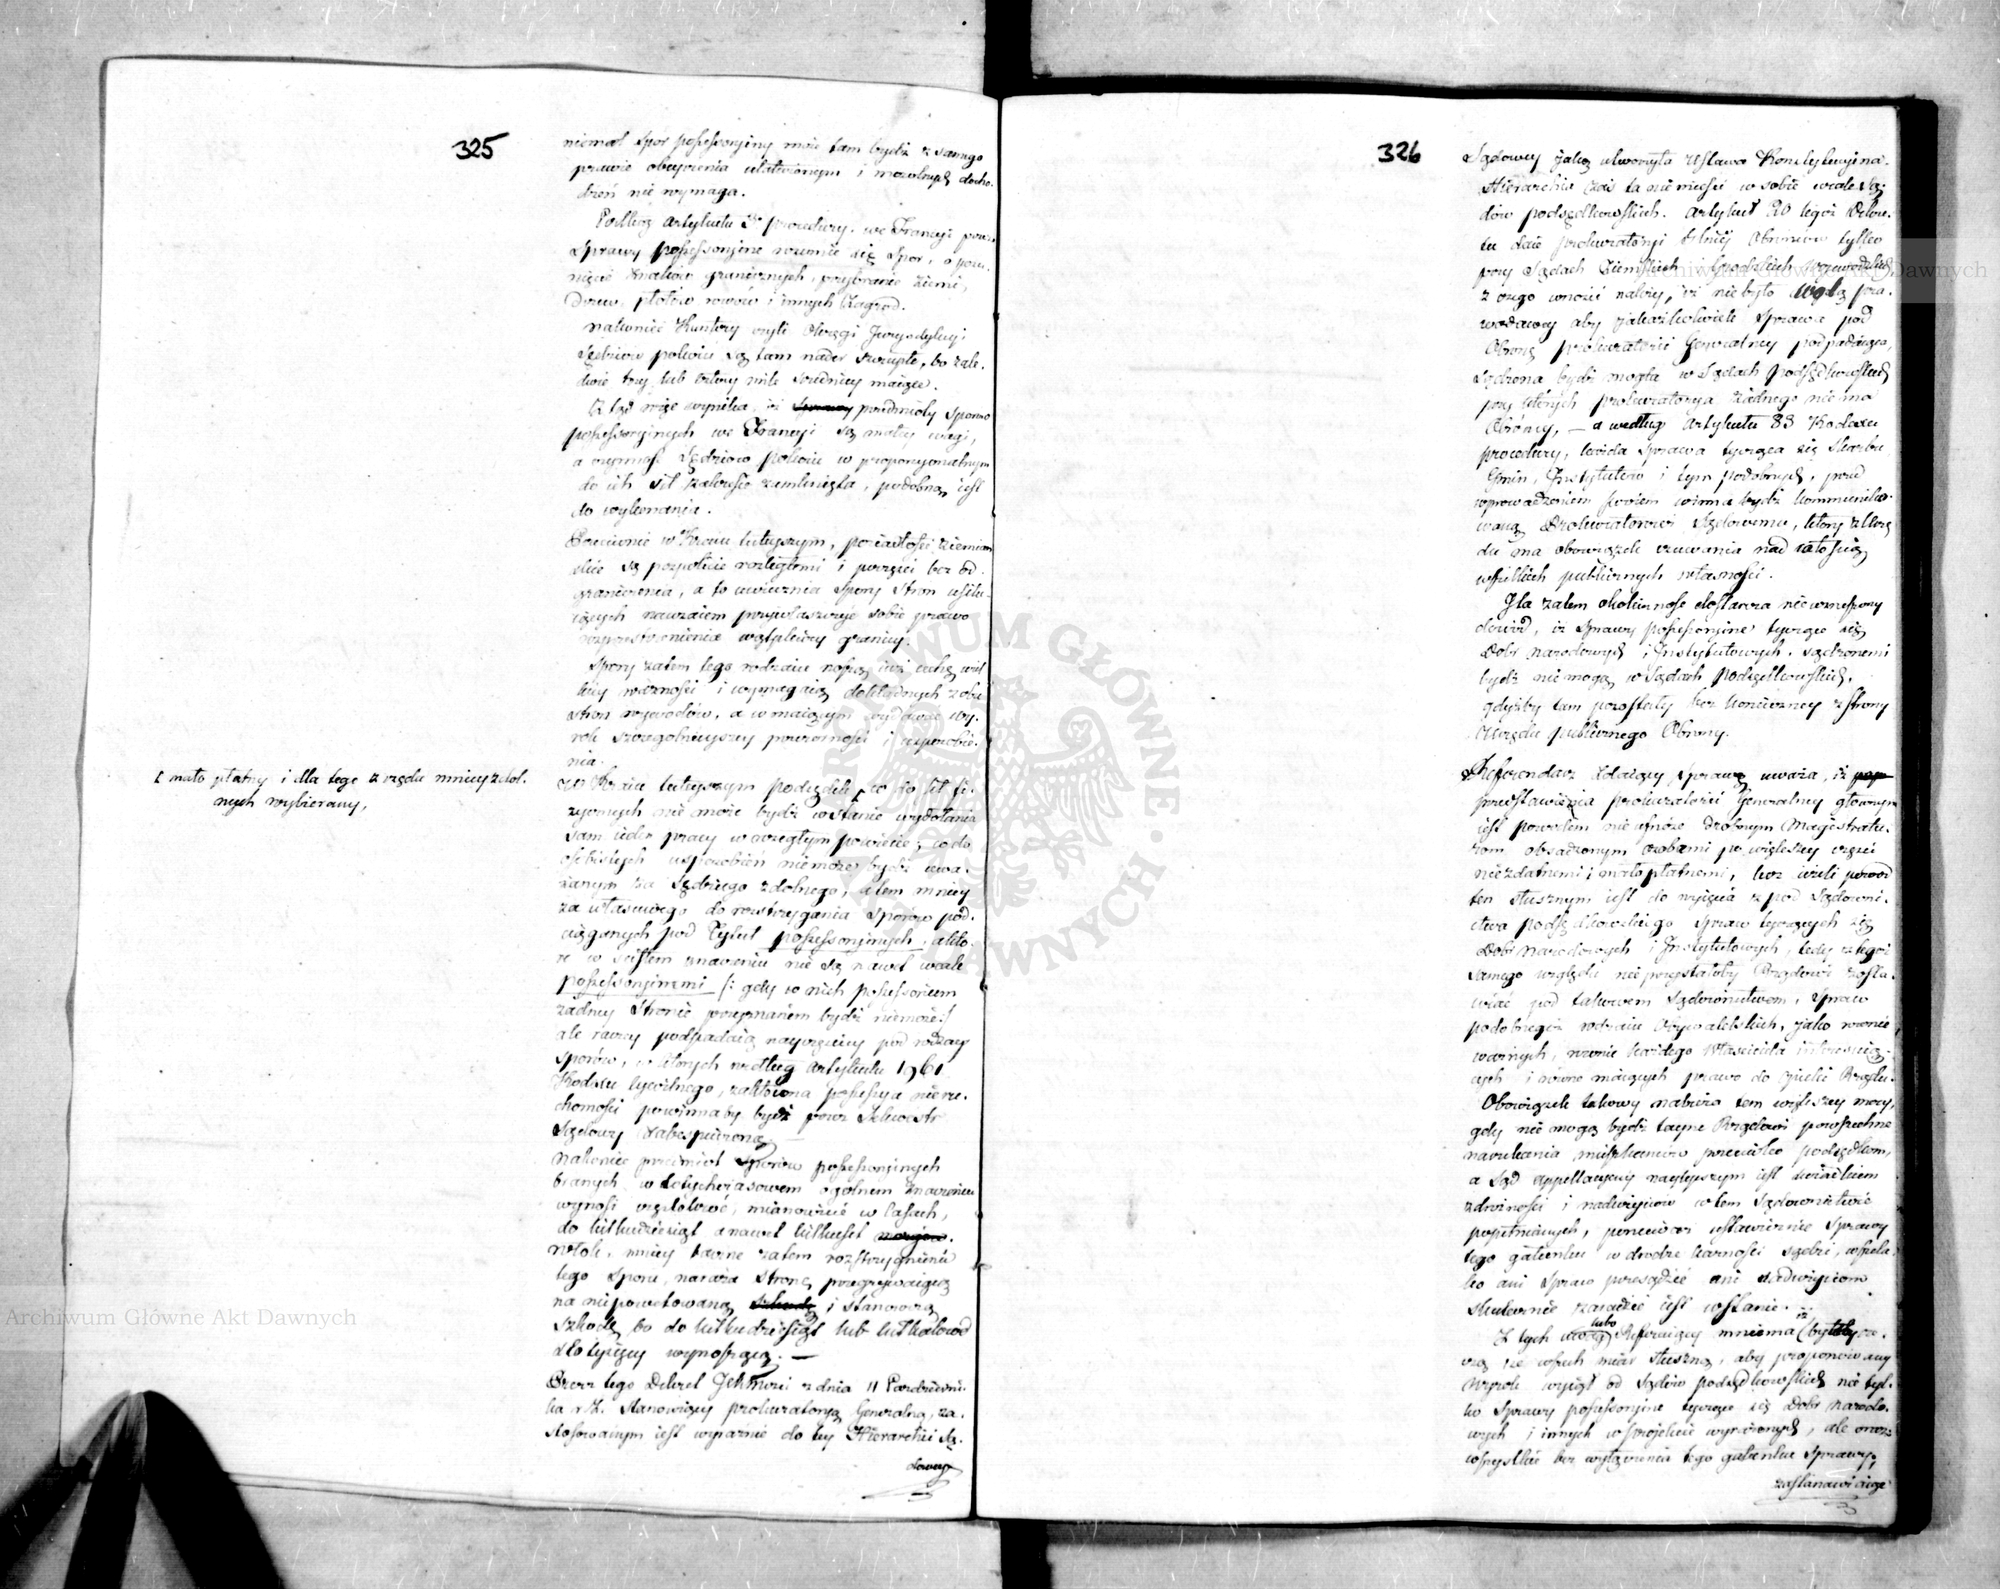 325
niemal spór possessoryiny może tam bydź z samego
prawie obeyrzenia ułatwionym i mozolnych docho-
dzeń nie wymaga.
Podług artykułu 3º procedury. we Francyi przez
Sprawy possessoryine rozumie się Spór, o posu-
nięcie znaków granicznych, przybranie Ziemi,
Drzew, płotów rowów i innych Zagród.
nakoniec Kantory czyli Okręgi Juryzdykcyi
Sędziów pokoiu są tam nader szczupłe, bo zale-
dwie trzy lub cztery mile średnicy maiące.
Z tąd więc wynika, iż Sprawy przedmioty Sporów
possessoryinych we Francyi są małey wagi,
a czynność Sędziów pokoiu w proporcyonalnym
do ich sił zakresie zamknięta, podobną iest
do wykonania.
Przeciwnie w Kraiu tuteyszym, posiadłości ziemiań-
skie są pospolicie rozległemi i po części bez od-
graniczenia, a to uwiecznia Spory Stron usiłu-
iących nawzaiem przywłaszczyć sobie prawo
rozprzestrzenienia wątpliwey granicy.
Spory zatem tego rodzaiu noszą iuż cechę wiel-
kiey ważności i wymagaią dokładnych z obu
stron wywodów, a w maiącym wydawać wy-
rok szczególnieyszey przezorności i usposobie-
nia.
i mało płatny i dla tego z rzędu mniey zdol-
nych wybierany,
W Kraiu tuteyszym podsędek, co do sił fi-
zycznych nie może bydź w stanie wydołania
sam ieden pracy w rozległym powiecie; co do
osobistych usposobień niemoże bydź uwa-
żanym za Sędziego zdolnego, a tem mniey
za właściwego do rozstrzygania Sporów pod-
ciąganych pod Tytuł possessoryinych, a któ-
re w ścisłem znaczeniu nie są nawet wcale
possessoryinemi /: gdy w nich possessorium
żadney Stronie przyznanem bydź niemoże:/
ale raczey podpadaią nayczęściey pod rodzay
sporów, w których według artykułu 1961
Kodexu cywilnego, zakłócona possessya nieru-
chomości powinnaby bydź przez Sekwestr
Sądowy zabespieczoną.
nakoniec przedmiot Sporów possessoryinych
branych w dotychczasowem ogólnem znaczeniu
wynosi częstokroć, mianowicie w lasach,
do kilkudziesiąt a nawet kilkuset morgów.
włok, mniey baczne zatem rozstrzygnienie
tego Sporu, naraża Stronę przegrywaiącą
na niepowetowaną szkodę i stanowczą
szkodę bo do kilkudziesiąt lub kilkakroć
stotysięcy wynoszącą. —
Przez tego Dekret Jch Mości z dnia 11 Październi-
ka r.z. stanowiący prokuratoryą Generalną, za-
stosowanym iest wyraźnie do tey Hierarchii Są-
dowey
326
Sądowey jaką utworzyła Ustawa Konstytucyina.
Hierarchia zaś ta nie mieści w sobie wcale Są-
dów podsędkowskich. artykuł 20 tegoż Dekre-
tu daie prokuratoryi tylko Obrońców tylko
przy Sądach Ziemskich i Grodzkich Wojewódzkich,
z czego wnosić należy, iż nie było wolą pra-
wodawcy aby jakakolwiek Sprawa pod
Obronę prokuratorii Generalney podpadaiąca,
sądzona bydź mogła w Sądach podsędkowskich
przy których prokuratorya żadnego nie ma
Obrońcy, — a według artykułu 83 Kodexu
procedury, każda Sprawa tycząca się Skarbu
Gmin, Instytutów i tym podobnych, przed
wprowadzeniem swoiem winna bydź kommuniko-
waną Prokuratorowi Sądowemu, który z Urzę-
du ma obowiązek czuwania nad całością
wszelkich publicznych własności.
Ita zatem okoliczność dostarcza niewzruszony
dowód, iż Sprawy possessoryine tyczące się
Dóbr narodowych i Instytutowych, sądzonemi
bydź nie mogą w Sądach Podsędkowskich,
gdyżby tam pozostały bez konieczney z strony
Urzędu publicznego Obrony.
Referendarz zdaiący Sprawę uważa, iż
przedstawienia prokuratorii Generalney głównym
iest powodem nieufność drobnym Magistratu-
rom obsadzonym osobami po większey części
niezdatnemi i małopłatnemi, lecz ieżeli powód
ten słusznym iest do wyięcia z pod Sądowni-
ctwa podsędkowskiego Spraw tyczących się
Dóbr narodowych i Instytutowych, tedy z tegoż
samego względu nieprzystałoby Rządowi zosta-
wiać pod takowem Sądownictwem, Spraw
podobnegoż rodzaiu Obywatelskich, jako równie
ważnych, równie każdego właściciela interesuią-
cych i równe maiących prawo do Opieki Rządu.
Obowiązek takowy nabiera tem większey mocy,
gdy nie mogą bydź tayne Rządowi powszechne
narzekania mieszkańców przeciwko podsędkom,
a Sąd appellacyiny naylepszym iest świadkiem
zdrożności i nadużyciów w tem Sądownictwie
popełnianych, ponieważ ustawicznie Sprawy
tego gatunku w drodze karności sądzi, wszela-
ko ani Spraw przesądzić ani nadużyciom
skutecznie zaradzić iest wstanie.
Z tych lubo Referuiący mniema iż byłoby rze-
czą ze wszech miar słuszną, aby proponowany
Wyrok wyiął od Sądów podsędkowskich nie tyl-
ko Sprawy possessoryine tyczące się Dóbr narodo-
wych i innych w proiekcie wyrażonych, ale oraz
wszystkie bez wyłączenia tego gatunku Sprawy,
zastanawiaiąc